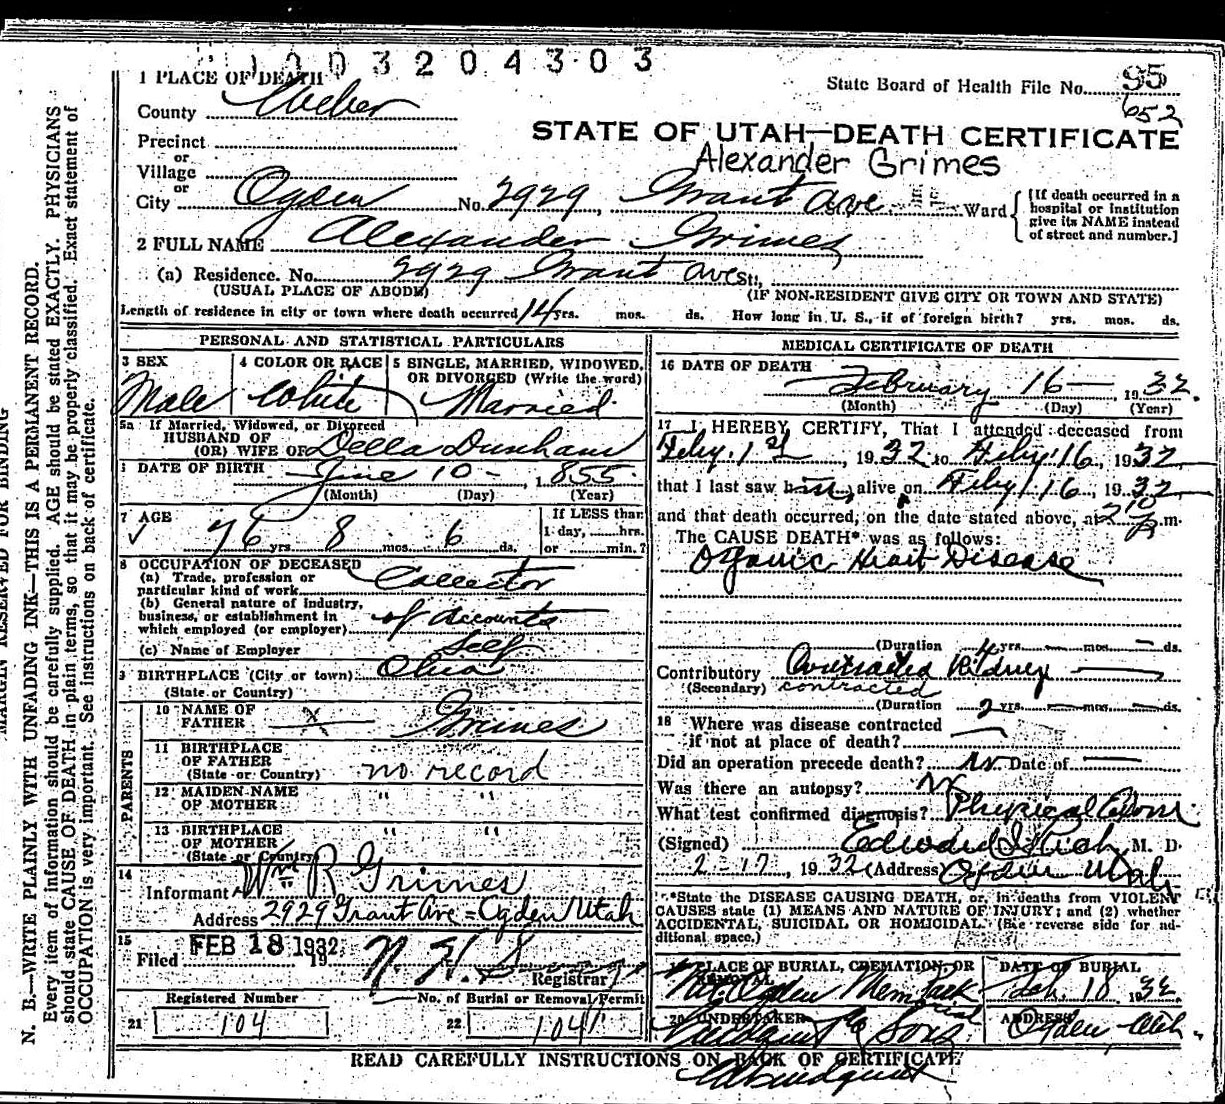 1003204303
1 PLACE OF DEATH
State Board of Health File No. 95
652
County Weber
STATE OF UTAH—DEATH CERTIFICATE
Precinct
or
Alexander Grimes
Village
or
City Ogden No. 2929 Grant Ave Ward
[If death occurred in a hospital or institution give its NAME instead of street and number.]
2 FULL NAME Alexander Grimes
(a) Residence. No. 2929 Grant Ave St.,
(USUAL PLACE OF ABODE) (IF NON-RESIDENT GIVE CITY OR TOWN AND STATE)
Length of residence in city or town where death occurred 14 yrs. mos. ds. How long in U. S., if of foreign birth? yrs. mos. ds.
PERSONAL AND STATISTICAL PARTICULARS
3 SEX Male
4 COLOR OR RACE White
5 SINGLE, MARRIED, WIDOWED, OR DIVORCED (Write the word) Married
5a If Married, Widowed, or Divorced
HUSBAND OF
(OR) WIFE OF Della Dunham
DATE OF BIRTH June 10 - 1855
(Month) (Day) (Year)
7 AGE 76 yrs. 8 mos. 6 ds.
If LESS than 1 day, hrs. or min.?
8 OCCUPATION OF DECEASED
(a) Trade, profession or particular kind of work Collector
(b) General nature of industry, business, or establishment in which employed (or employer) of Accounts
(c) Name of Employer Self
9 BIRTHPLACE (City or town) Ohio
(State or Country)
PARENTS
10 NAME OF FATHER x Grimes
11 BIRTHPLACE OF FATHER
(State or Country) no record
12 MAIDEN NAME OF MOTHER " "
13 BIRTHPLACE OF MOTHER " "
(State or Country)
14 Informant Wm R Grimes
Address 2929 Grant Ave = Ogden Utah
15 Filed FEB 18 1932 19 N. H.
Registrar
Registered Number No. of Burial or Removal Permit
21 104 22 104
MEDICAL CERTIFICATE OF DEATH
16 DATE OF DEATH
February 16 — 1932.
(Month) (Day) (Year)
17 I HEREBY CERTIFY, That I attended deceased from
Feby. 1st, 1932 to Feby 16, 1932
that I last saw him alive on Feby 16, 1932
and that death occurred, on the date stated above, at 2 10 p.m.
The CAUSE DEATH* was as follows:
Organic Heart Disease
(Duration 4 yrs. — mos. — ds.
Contributory Contracted Kidney
(Secondary) contracted
(Duration 2 yrs. — mos. — ds.
18 Where was disease contracted
if not at place of death?
Did an operation precede death? no Date of —
Was there an autopsy? no
What test confirmed diagnosis? Physical Exam
(Signed) Edward I Rich, M. D.
2-17, 1932 (Address) Ogden Utah
*State the DISEASE CAUSING DEATH, or, in deaths from VIOLENT
CAUSES state (1) MEANS AND NATURE OF INJURY; and (2) whether
ACCIDENTAL, SUICIDAL OR HOMICIDAL. (See reverse side for ad-
ditional space.)
19 PLACE OF BURIAL, CREMATION, OR REMOVAL
Mt Ogden Memorial Park
DATE OF BURIAL
Feb. 18 1932.
20 UNDERTAKER & Sons
ADDRESS
Ogden, Utah,
READ CAREFULLY INSTRUCTIONS ON BACK OF CERTIFICATE
MARGIN RESERVED FOR BINDING
N. B.—WRITE PLAINLY WITH UNFADING INK—THIS IS A PERMANENT RECORD.
Every item of information should be carefully supplied. AGE should be stated EXACTLY. PHYSICIANS
should state CAUSE OF DEATH in plain terms, so that it may be properly classified. Exact statement of
OCCUPATION is very important. See instructions on back of certificate.